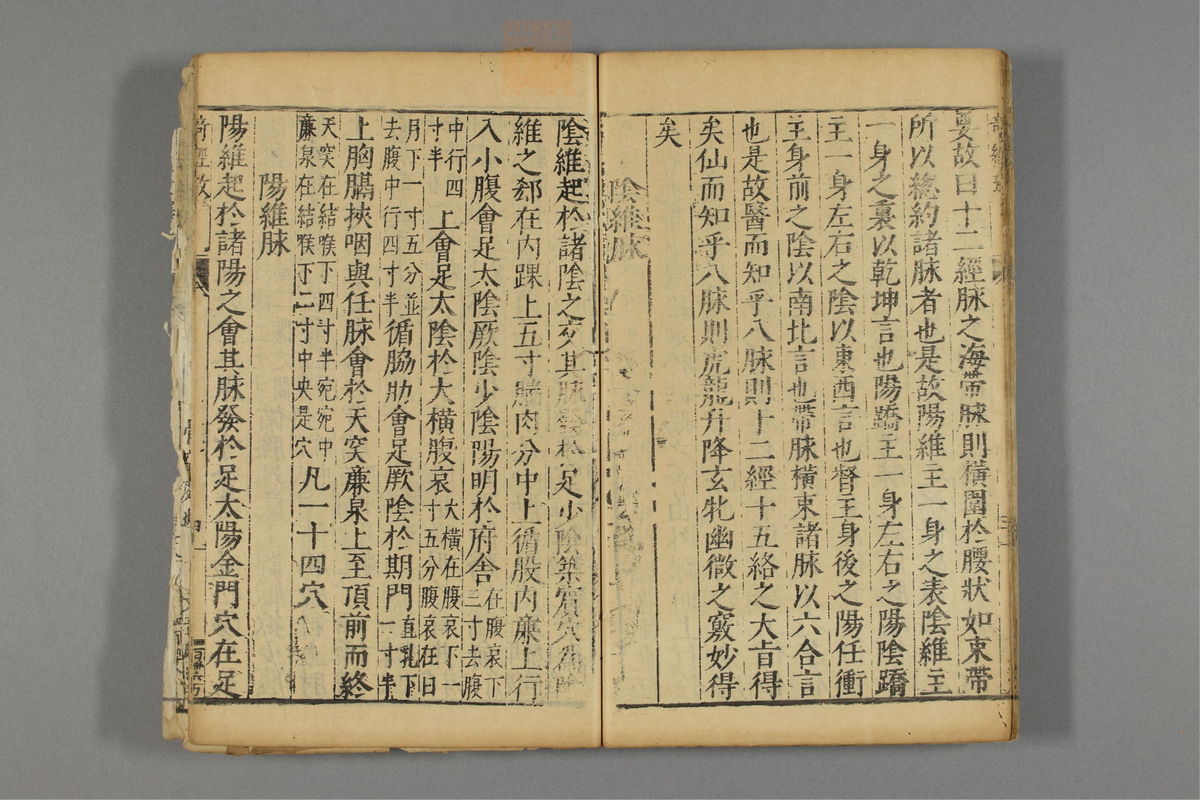 要故曰十二經脉之海帶脉則橫圍於腰狀如束帶
所以緫約諸脉者也是故陽維主一身之表陰維主
一身之裏以乾坤言也陽蹻主一身左右之陽陰蹻
主一身左右之陰以東西言也督主身後之陽任衝
主身前之陰以南北言也帶脉橫束諸脉以六合言
也是故醫而知乎八脉則十二經十五絡之大旨得
矣仙而知乎八脉則虎龍升降玄牝幽微之竅妙得
矣
陰維脉
陰維起於諸陰之交其脉發於足少陰築賔穴為陰
維之郄在内踝上五寸腨肉分中上循股内廉上行
入小腹會足太陰厥陰少陰陽明於府舎在腹哀下三寸去腹
中行四寸半上會足太陰於大橫腹哀大橫在腹哀下一寸五分腹哀在日
月下一寸五分並去腹中行四寸半循脇肋會足厥陰於期門直乳下一寸半
上胸膈挾咽與任脉會於天突廉泉上至頂前而終
天突在結喉下四寸半宛宛中廉泉在結喉下二寸中央是穴凡一十四穴
陽維脉
陽維起於諸陽之會其脉發於足太陽金門穴在足